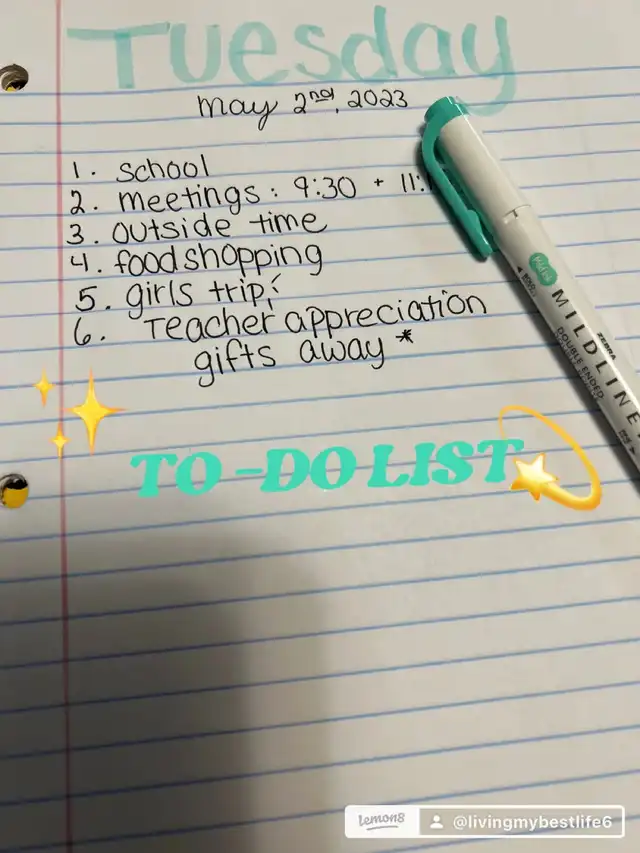 Tuesday
may 2nd, 2023
1. school
2. meetings: 9:30 + 11:
3. outside time
4. foodshopping
5. girls trip!
6. Teacher appreciation
gifts away *
TO-DO LIST
Mild
ZEBRA
MILDLINE
DOUBLE ENDED
Lemon8 @livingmybestlife6